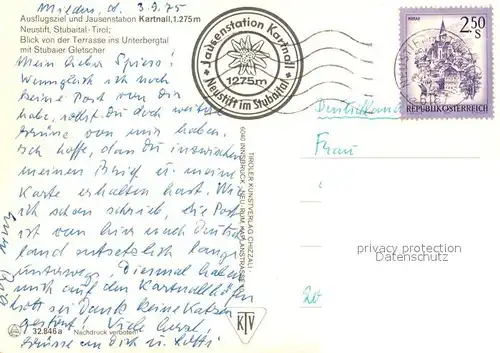 Mieders, d. 3.9.75
Ausflugsziel und Jausenstation Kartnall, 1.275m
Neustift, Stubaital-Tirol;
Blick von der Terrasse ins Unterbergtal
mit Stubaier Gletscher
Mein lieber
Wenngleich ich noch
keine Post von Dir
habe, sollst Du doch weitere
Grüsse von mir haben.
Ich hoffe, dass Du inzwischen
meinen Brief u. meine
Karte erhalten hast. Wie
ich schon schrieb, die Post
ist von hier nach Deutsch
land entsetzlich lange
unterwegs. Diesmal haben
mich auf den Kartnallhöfen
Gott sei Dank keine Katzen
gestört! Viele herzl.
Grüsse an Dich u.
32.846a Nachdruck verboten
Jausenstation Kartnall
1275m
Neustift im Stubaital
TIROLER KUNSTVERLAG CHIZZALI
6040 INNSBRUCK - NEU-RUM, KAPLANSTRASSE
KTV
2.50 S
REPUBLIK ÖSTERREICH
Deutschland
Frau
privacy protection
datenschutz